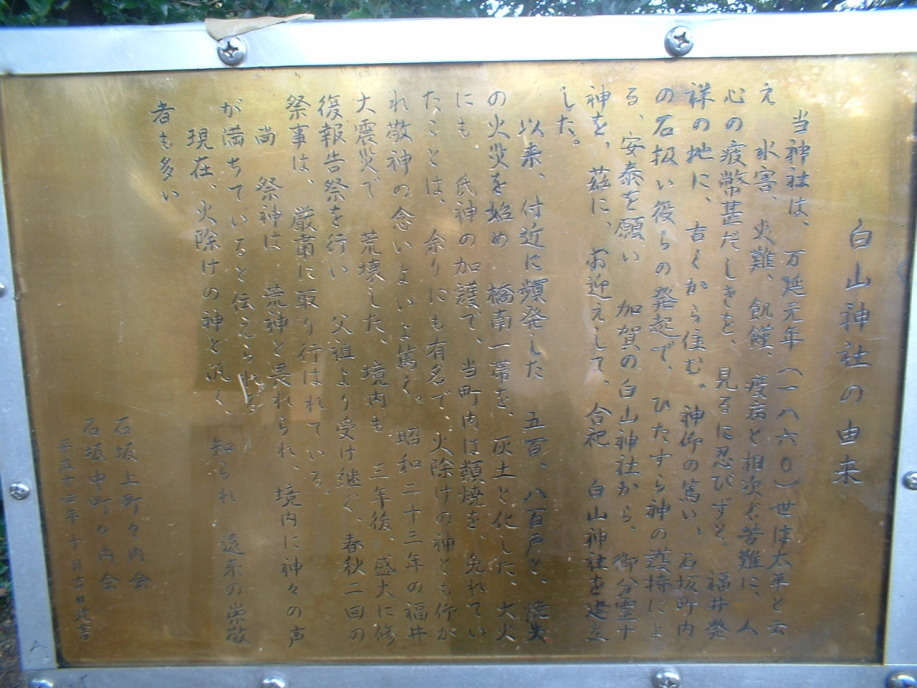 白山神社の由来
当神社は、万延元年(一八六〇)世は太平と云
え 水害、火難、飢饉、疫病と相次ぐ苦難に、人
心の疲幣甚だしきを、見るに忍びずと、福井発
祥の地に、古くから住む。神仰の篤い、石坂町内
の石扱い役らの発起で、ひたすら神の護持によ
る、安泰を願い 加賀の白山神社から、御分霊十
神を、茲に、お迎えして、合祀 白山神社を建立
した。
以来、付近に頻発した 五百、八百戸と、焼失
の火災を始め 橋南一帯を、灰土と化した、大火
にも 氏神の加護で、当町内は類焼を、免れてい
たことは、余りにも有名で、火除けの神とも行か
れ敬神の念いよいよ篤く。昭和二十三年の福井
大震災で 荒壊した、境内も 三年後、盛大に修
復報告祭を行い 父祖より受け継ぐ、春秋二回の
祭事は、厳粛に取り行はれている。
尚 祭神は 荒神と畏れられ、境内に神々の声
が満ちていると伝えられる
現在、火除けの神と汎く、知られ 遠来の崇敬
者も多い
石坂上町々内会
石坂中町々内会
平成十二年十月吉日